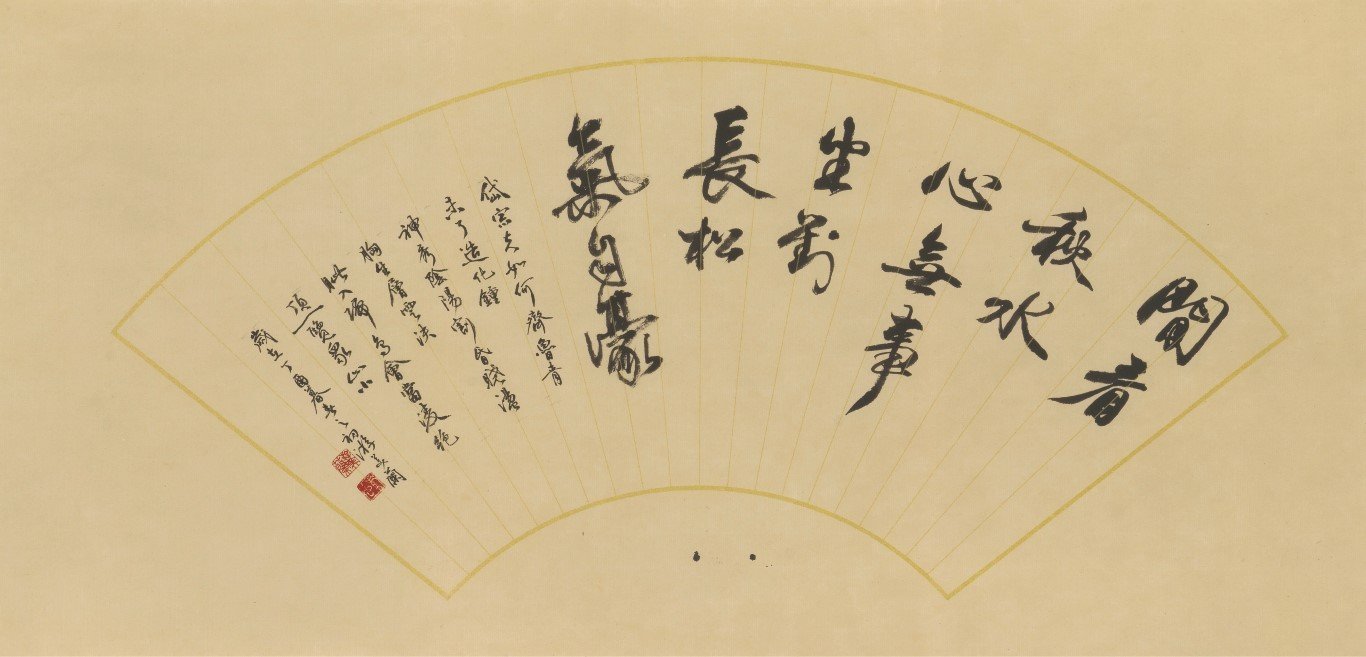 閒看
秋水
心無事
坐對
長松
氣自豪
岱宗夫如何齊魯青
未了造化鍾
神秀陰陽割昏曉盪
胸生層雲決
眥入歸鳥會當凌絕
頂一覽眾山小
歲在丁酉暮春之初游美蘭